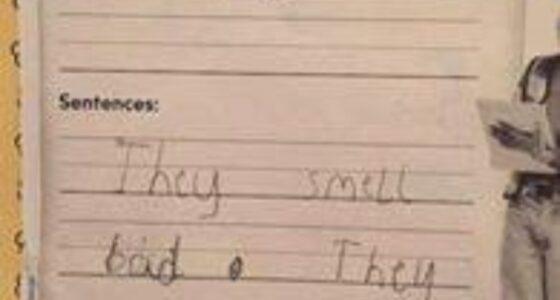 Sentences:
They smell
bad. They